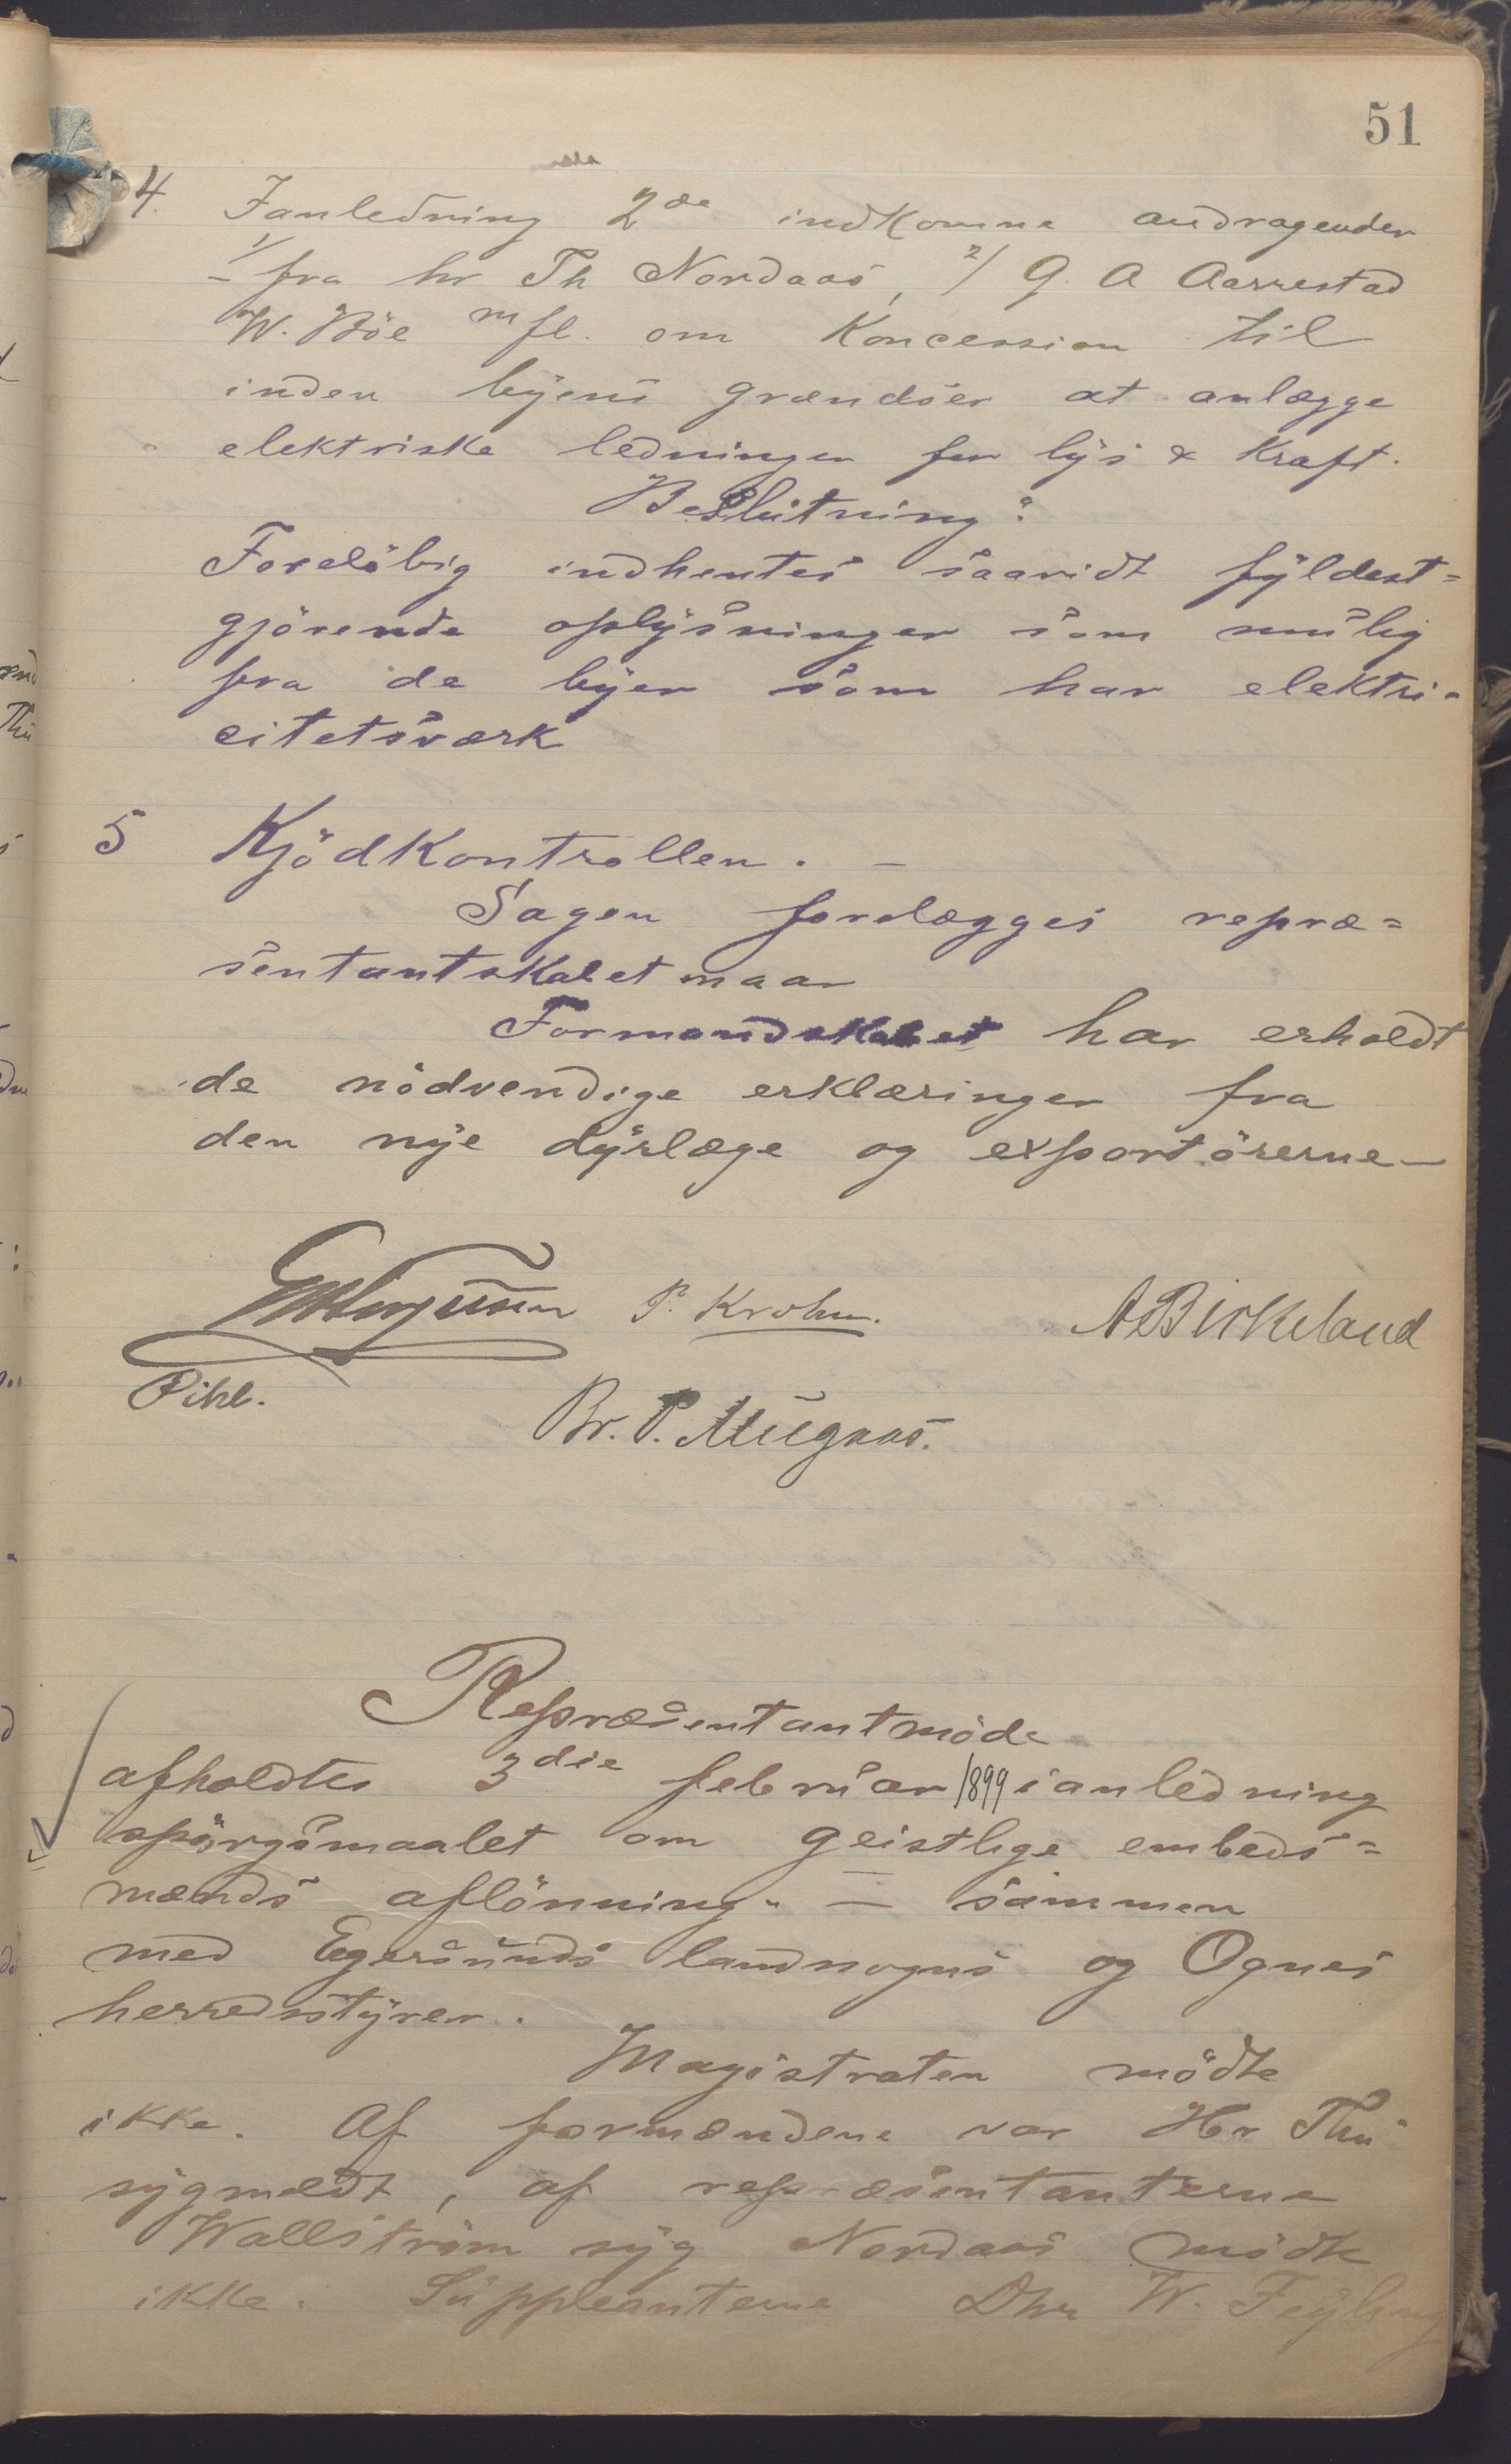 51
4. Ianledning 2de indkomne andragender
1/ fra hr Th Nordaas, 2/ G. A Aarrestad
W. Böe m fl. om Koncession til
inden byens grændser at anlægge
elektriske ledninger for lys & Kraft.
Beslutning:
Forelöbig indhentes saavidt fyldest=
gjörende oplysninger som mulig
fra de byer som har elektri-
citetsværk
5 Kjödkontrollen. —
Sagen forelægges repræ=
sentantskabet naar
Formandskabet har erholdt
de nödvendige erklæringer fra
den nye dyrlæge og exportörerne —
P. Krohn. A Birkeland
Pihl.
Br. P. Mugaas.
Repræsentantmöde
afholdtes 3die februar 1899 ianledning
spörgsmaalet om geistlige embeds=
mænds aflönning. — sammen
med Egersunds landsogns og Ognes
herredsstyrer.
Magistraten mödte
ikke. Af formændene var Hr Thu
sygmeldt, af repræsentanterne
Wallström syg Nordaas mödte
ikke. Suppleanterne Dhr W. Feyling